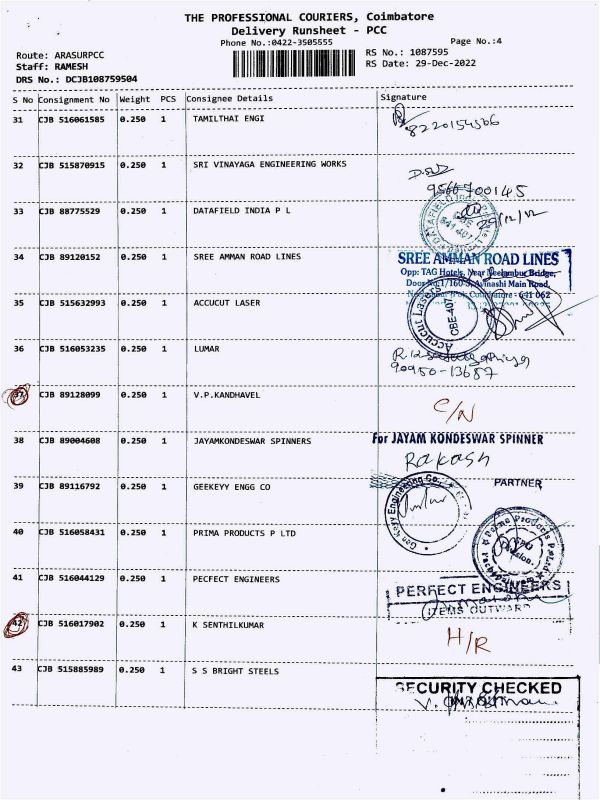 THE PROFESSIONAL COURIERS, Coimbatore
Delivery Runsheet - PCC
Phone No.:0422-3505555
Page No.:4
Route: ARASURPCC
RS No.: 1087595
Staff: RAMESH
RS Date: 29-Dec-2022
DRS No.: DCJB108759504
S No Consignment No Weight PCS Consignee Details Signature
31 CJB 516061585 0.250 1 TAMILTHAI ENGI
8220154506
32 CJB 515870915 0.250 1 SRI VINAYAGA ENGINEERING WORKS
9566700145
33 CJB 88775529 0.250 1 DATAFIELD INDIA P L
29/12/22
34 CJB 89120152 0.250 1 SREE AMMAN ROAD LINES
SREE AMMAN ROAD LINES
Opp: TAG Hotels, Near Neelambur Bridge,
Door No:1/160-5, Avinashi Main Road,
Coimbatore - 641 062
35 CJB 515632993 0.250 1 ACCUCUT LASER
Accucut Lasers
CBE-407
36 CJB 516053235 0.250 1 LUMAR
90950-13687
37 CJB 89128099 0.250 1 V.P.KANDHAVEL
C/N
38 CJB 89004608 0.250 1 JAYAMKONDESWAR SPINNERS
For JAYAM KONDESWAR SPINNER
Rakash
PARTNER
39 CJB 89116792 0.250 1 GEEKEYY ENGG CO
Gee Keyy Engineering Co.
40 CJB 516058431 0.250 1 PRIMA PRODUCTS P LTD
41 CJB 516044129 0.250 1 PECFECT ENGINEERS
PERFECT ENGINEERS
ITEMS OUTWARD
42 CJB 516017902 0.250 1 K SENTHILKUMAR
H/R
43 CJB 515885989 0.250 1 S S BRIGHT STEELS
SECURITY CHECKED